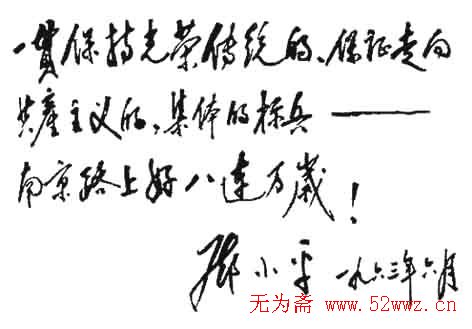 一贯保持光荣传统的、保证走向
共产主义的,集体的标兵——
南京路上好八连万岁!
邓小平 一九六三年六月
无为斋 www.52wwz.cn